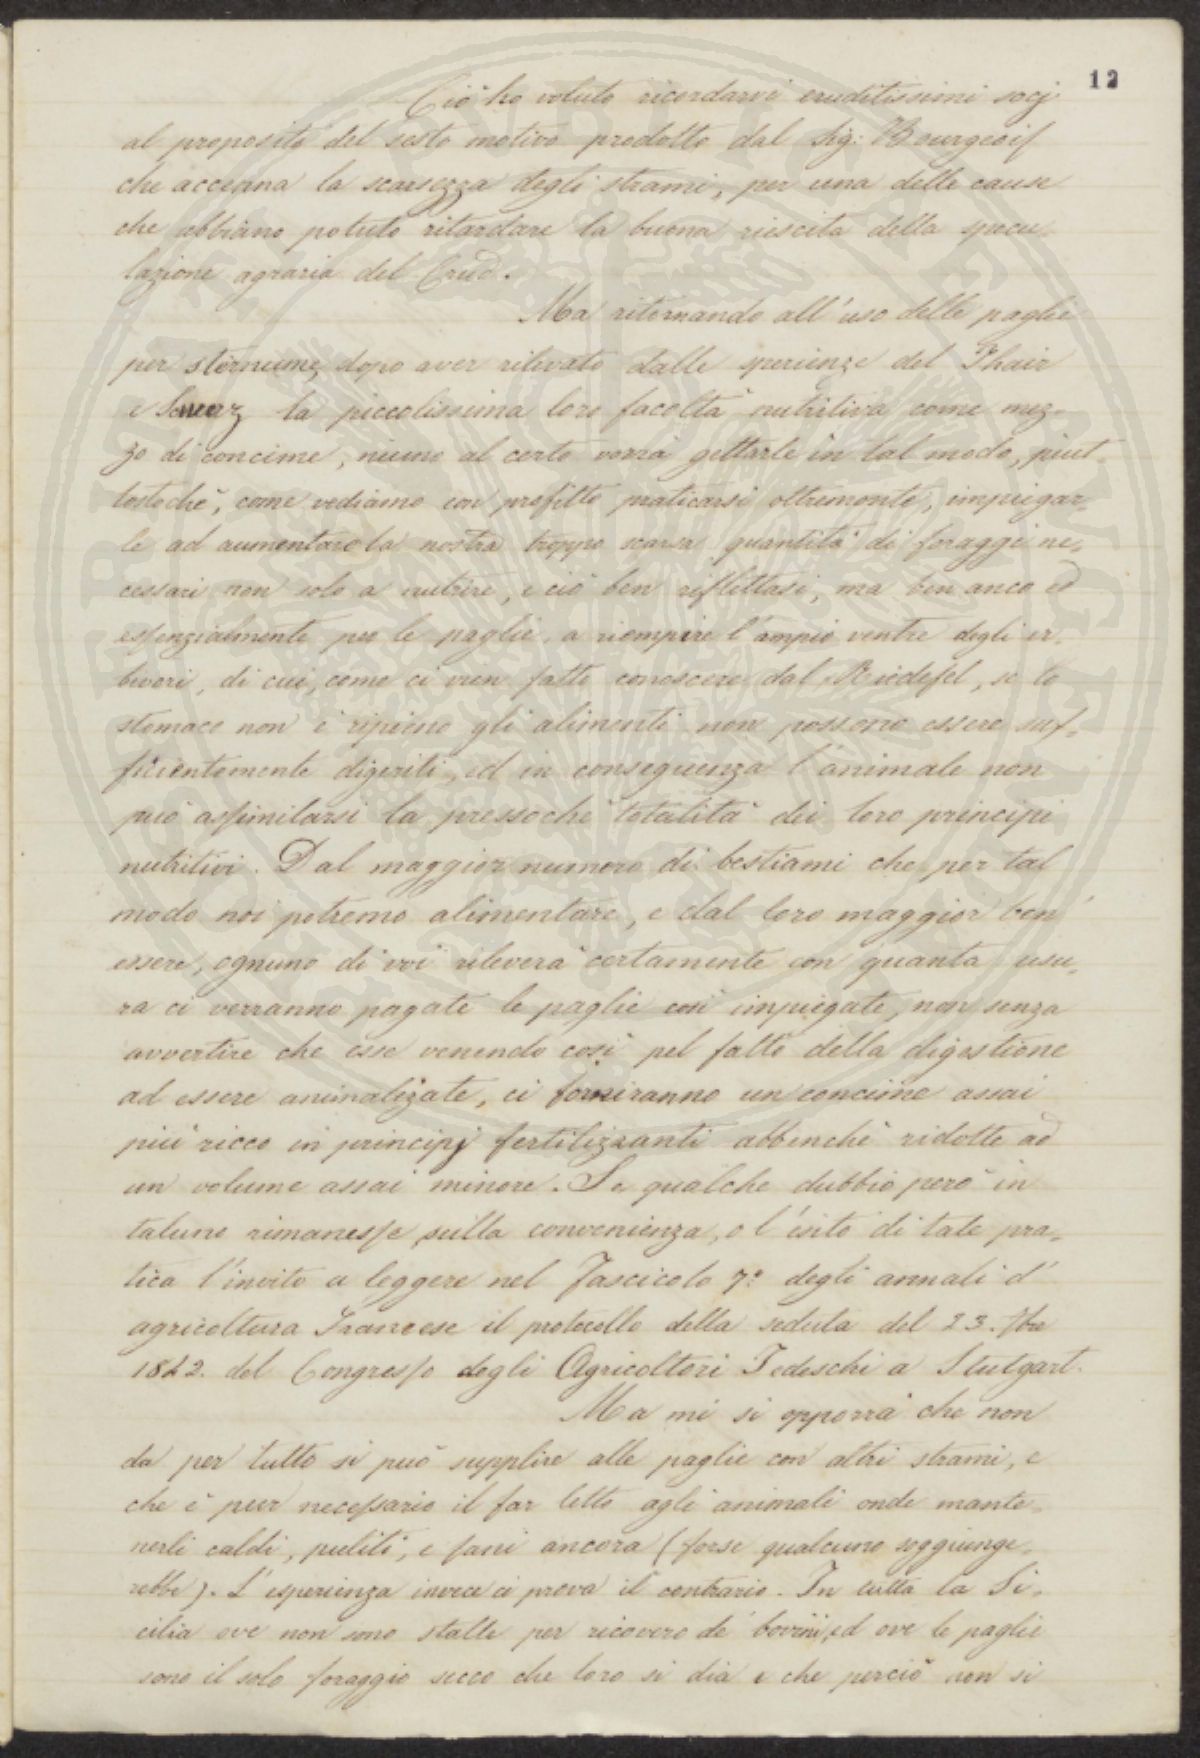 12
Ciò ho voluto ricordarvi eruditissimi socj
al proposito del sesto motivo prodotto dal Sig: Bourgeois
che accenna la scarsezza degli strami, per una delle cause
che abbiano potuto ritardare la buona riescita della specu-
lazione agraria del Crud.
Ma ritornando all'uso delle paglie
per sternume, dopo aver rilevato dalle sperienze del Thair
e la piccolissima loro facoltà nutritiva come mez-
zo di concime, niuno al certo vorrà gettarle in tal modo, piut-
tostochè, come vediamo con profitto praticarsi oltremonte, impiegar-
le ad aumentare la nostra troppo scarsa quantità di foraggi ne-
cessari non solo a nutrire, e ciò ben riflettasi, ma ben anco ed
essenzialmente per le paglie, a riempire l'ampio ventre degli er-
bivori, di cui, come ci vien fatto conoscere dal Riedesel, se lo
stomaco non è ripieno gli alimenti non possono essere suf-
ficientemente digeriti, ed in conseguenza l'animale non
può assimilarsi la pressochè totalità dei loro principi
nutritivi. Dal maggior numero di bestiami che per tal
modo noi potremo alimentare, e dal loro maggior ben'
essere, ognuno di voi rileverà certamente con quanta usu-
ra ci verranno pagate le paglie così impiegate, non senza
avvertire che esse venendo così pel fatto della digestione
ad essere animalizate, ci forniranno un concime assai
più ricco in principj fertilizzanti abbenchè ridotte ad
un volume assai minore. Se qualche dubbio però in
taluno rimanesse sulla convenienza, o l'esito di tale pra-
tica l'invito a leggere nel Fascicolo 7° degli annali d'
agricoltura Francese il protocollo della seduta del 23. 7bre
1842. del Congresso degli Agricoltori Tedeschi a Stutgart.
Ma mi si opporrà che non
da per tutto si può supplire alle paglie con altri strami, e
che è pur necessario il far letto agli animali onde mante-
nerli caldi, puliti, e sani ancora (forse qualcuno soggiunge-
rebbe). L'esperienza invece ci prova il contrario. In tutta la Si-
cilia ove non sono stalle per ricovero de' bovini, ed ove le paglie
sono il solo foraggio secco che loro si dia e che perciò non si